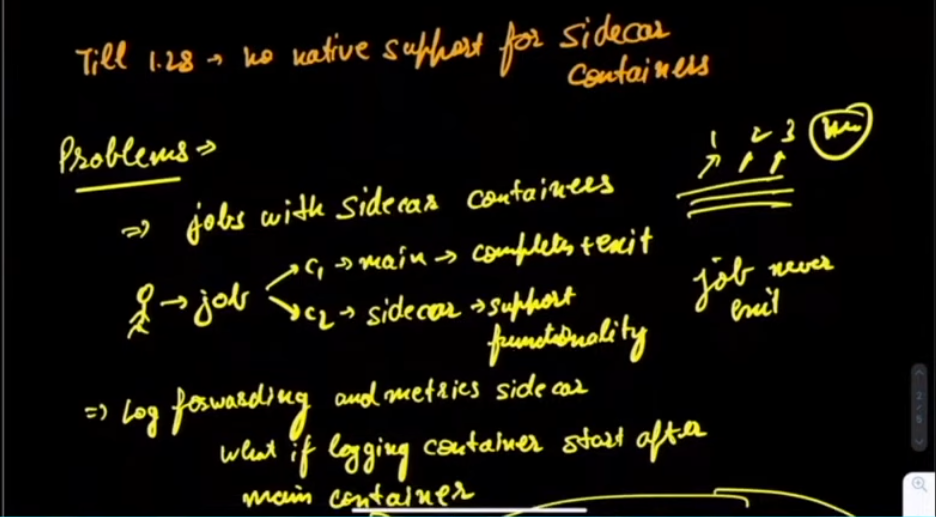 Till 1.28 → no native support for sidecar
containers
Problems ⇒
1 2 3
⇒ jobs with sidecar containers
→ job → c1 → main → completes + exit
→ c2 → sidecar → support
functionality
job never
exit
⇒ Log forwarding and metrics sidecar
what if logging container start after
main container
2